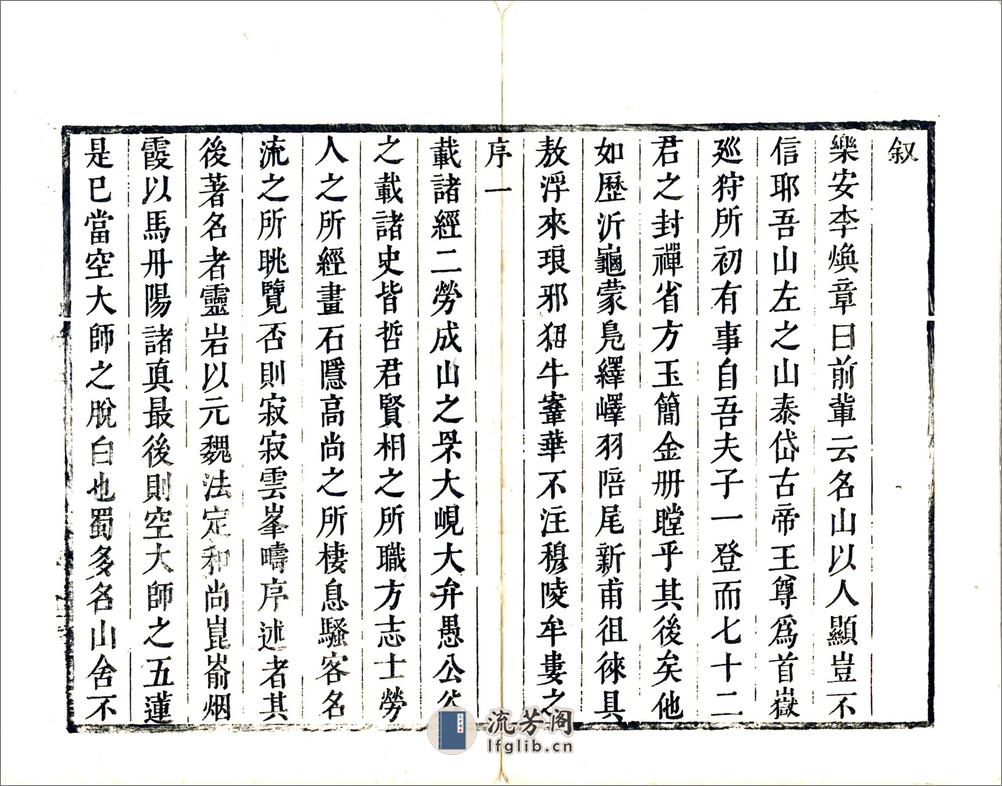 叙
樂安李煥章曰前輩云名山以人顯豈不
信耶吾山左之山泰岱古帝王尊爲首嶽
廵狩所初有事自吾夫子一登而七十二
君之封禪省方玉簡金册瞠乎其後矣他
如歷沂龜蒙鳧繹嶧羽陪尾新甫徂徠具
敖浮來琅邪猫牛𡺚華不注穆陵牟婁之
序一
載諸經二勞成山之罘大峴大弁愚公公
之載諸史皆哲君賢相之所職方志士勞
人之所經畫石隱高尚之所棲息騷客名
流之所眺覽否則寂寂雲峯疇序述者其
後著名者靈岩以元魏法定和尚崑崳烟
霞以馬丹陽諸眞最後則空大師之五蓮
是已當空大師之脫白也蜀多名山舍不
流芳阁
lfglib.cn